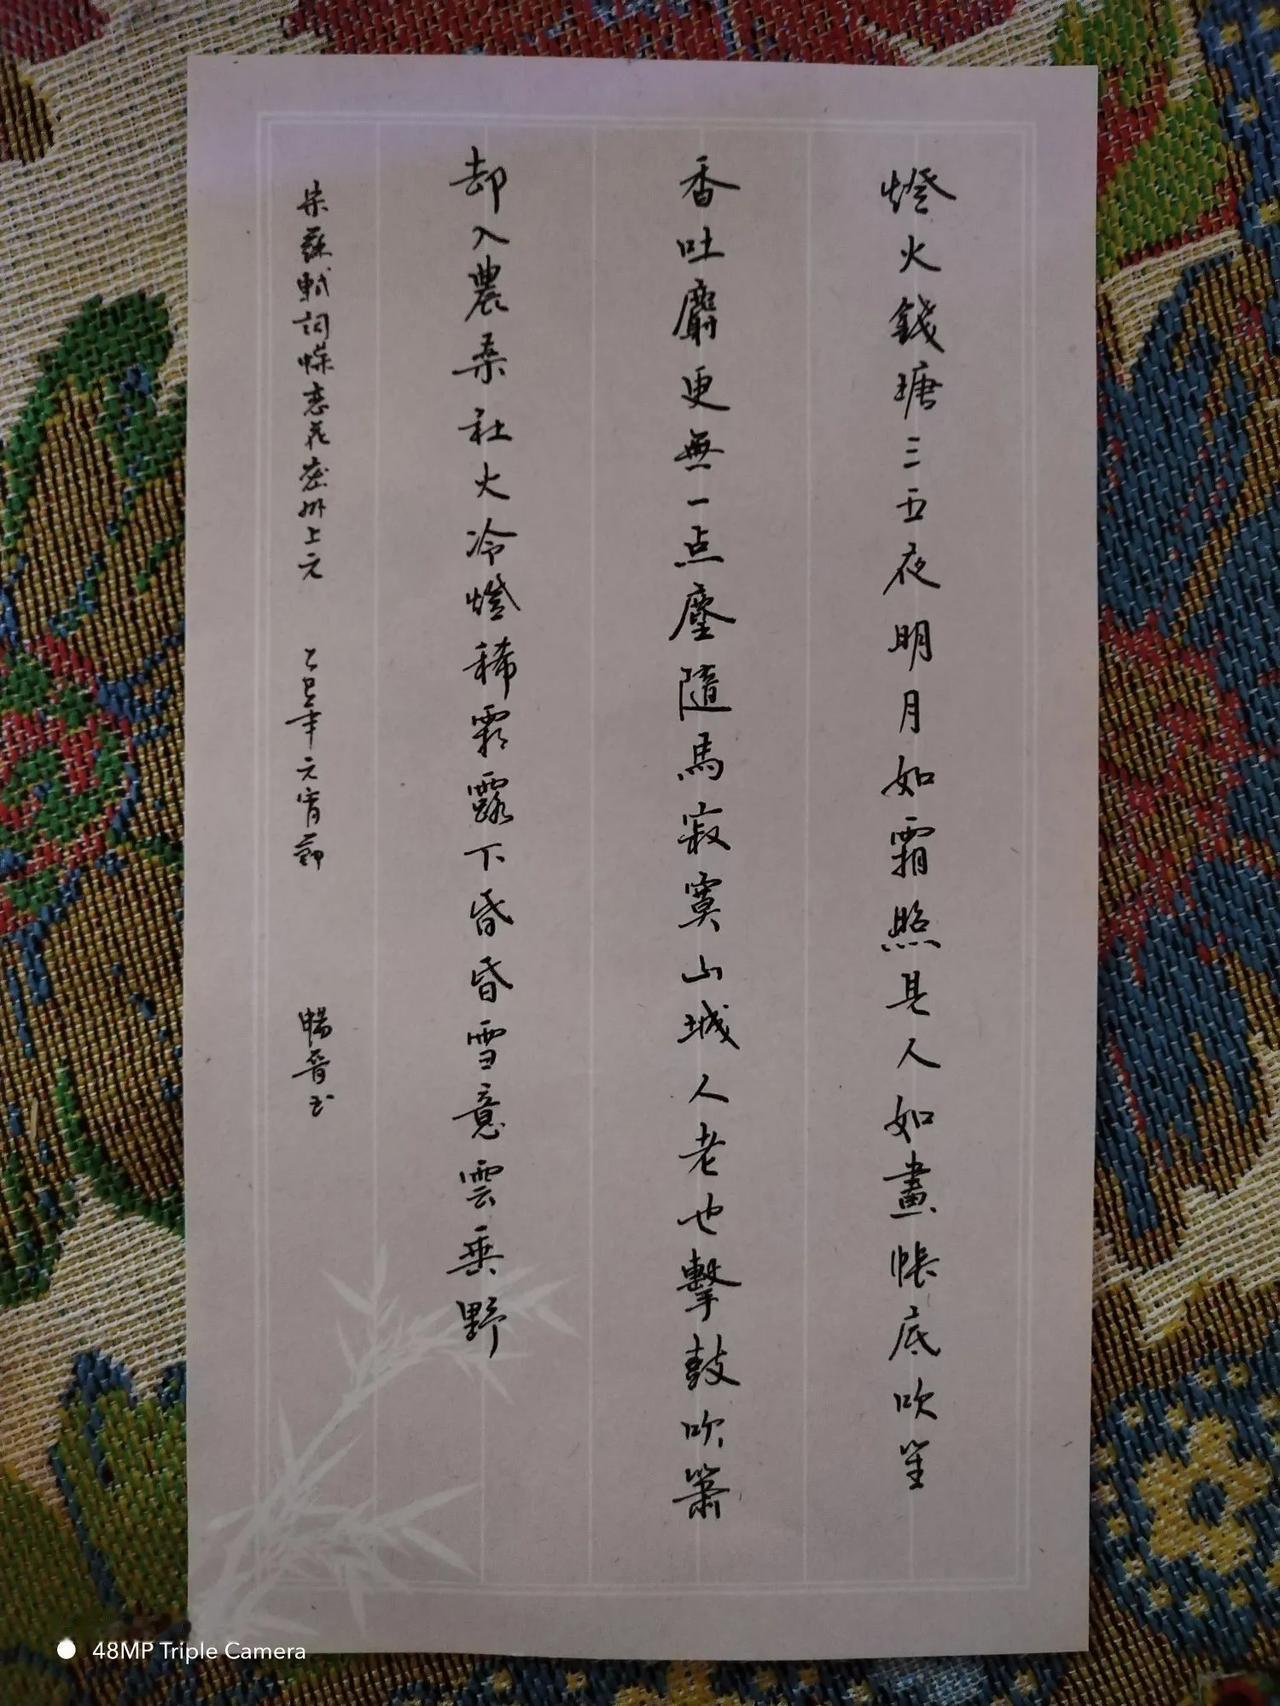 燈火錢塘三五夜明月如霜照見人如畫帳底吹笙
香吐麝更無一点塵隨馬寂寞山城人老也擊鼓吹簫
却入農桑社火冷燈稀霜露下昏昏雪意雲垂野
宋蘇軾詞蝶恋花密州上元 乙巳年元宵節 暢晉
48MP Triple Camera